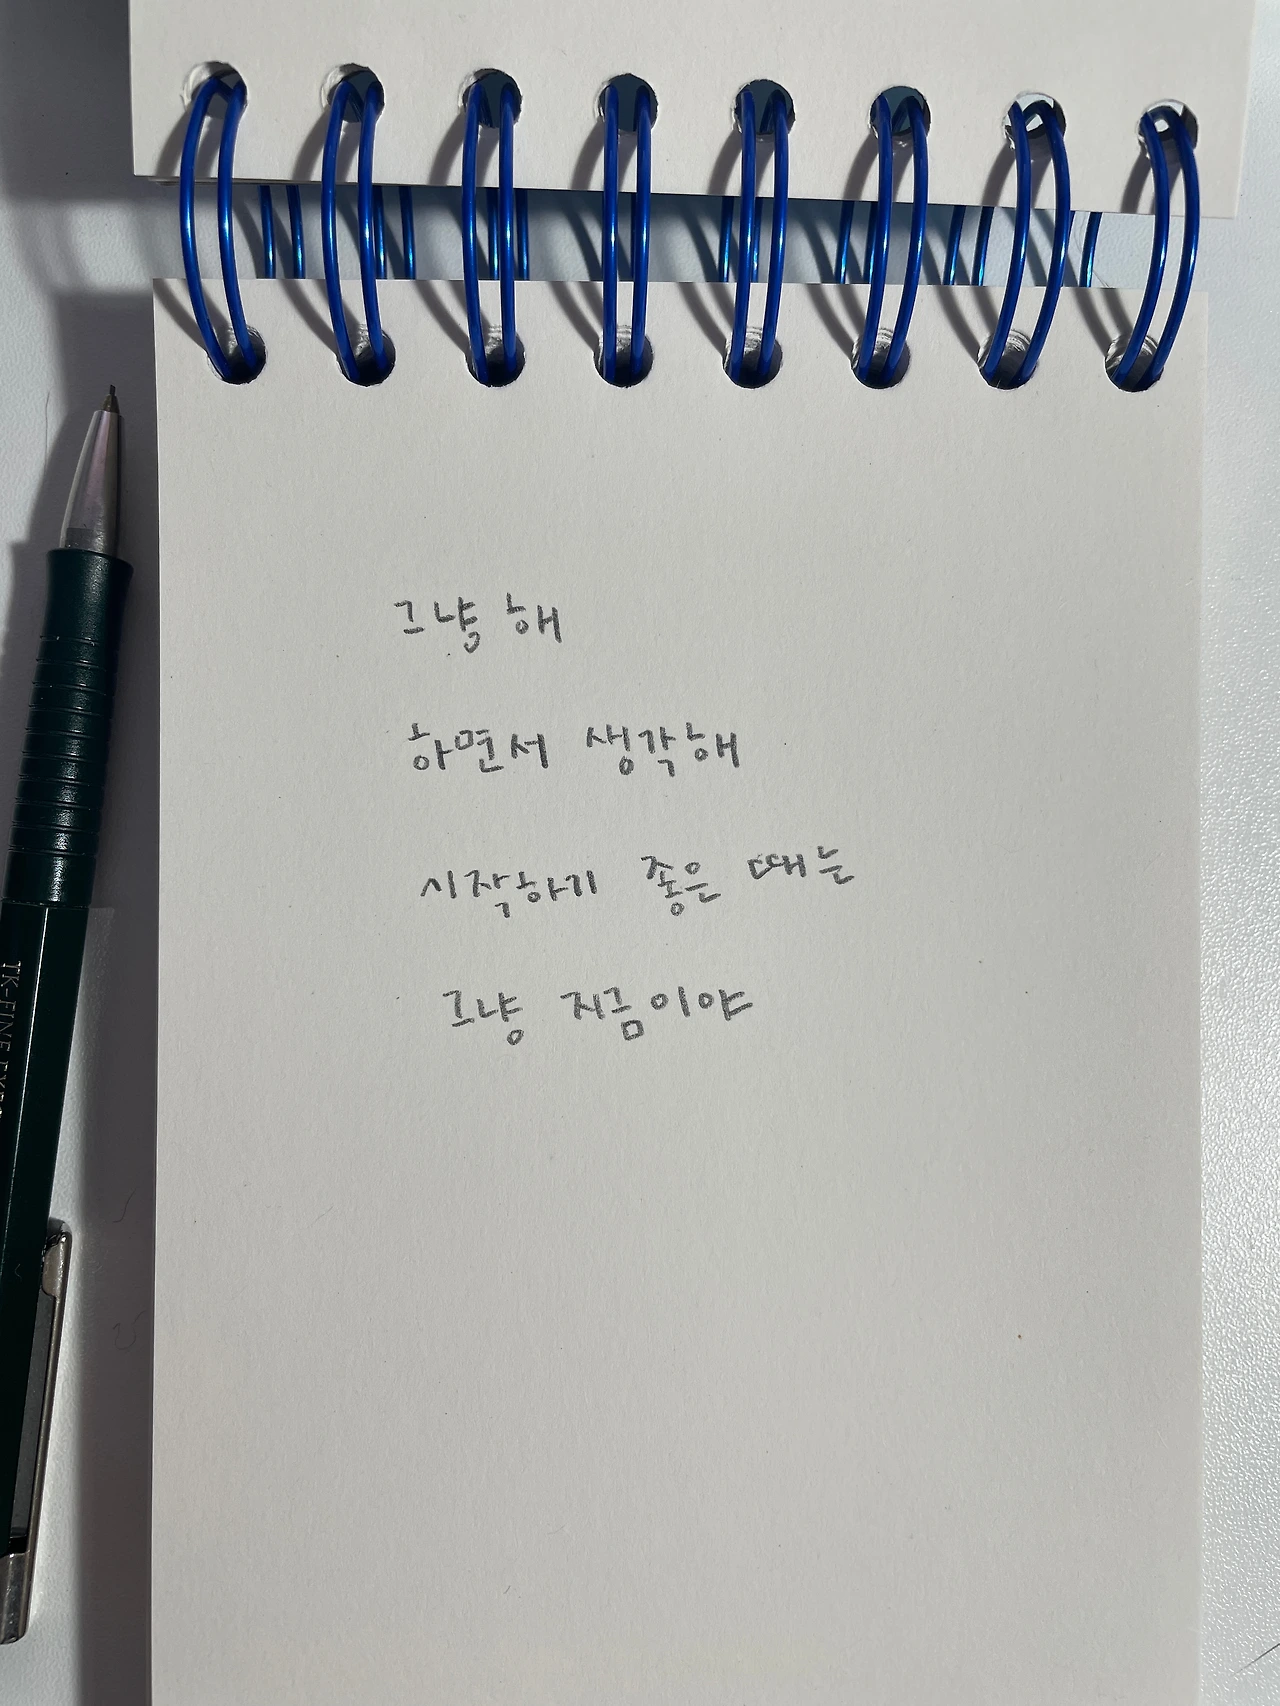 그냥 해
하면서 생각해
시작하기 좋은 때는
그냥 지금이야
TK-FINE